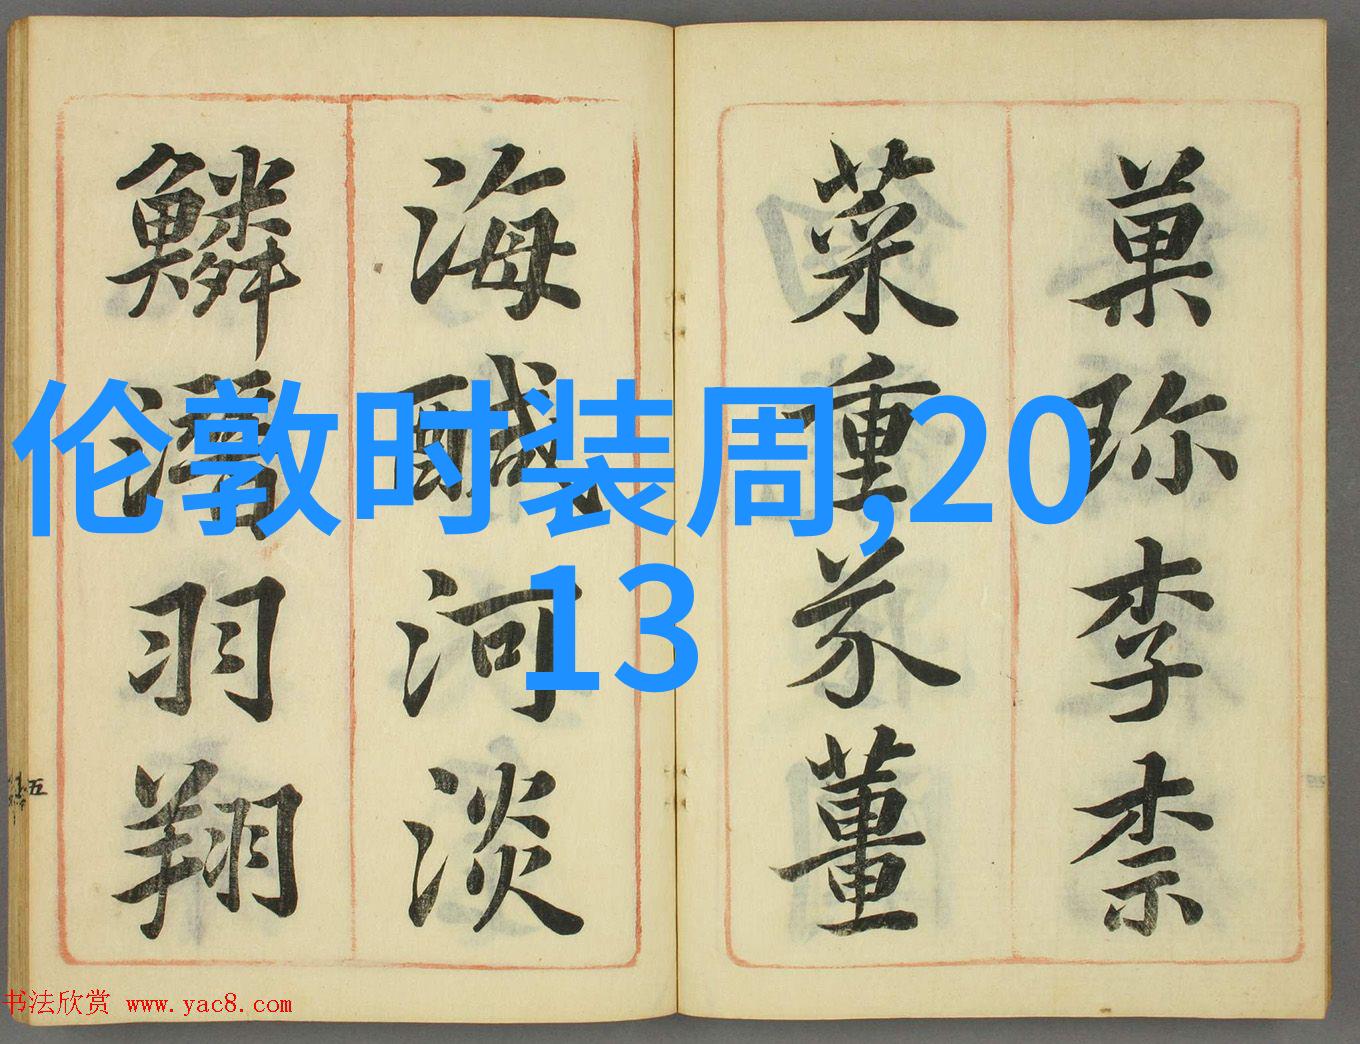 菓珎李柰
菜重芥薑
海醎河淡
鱗潛羽翔
五
伦敦时装周,20
13
书法欣赏 www.yac8.com